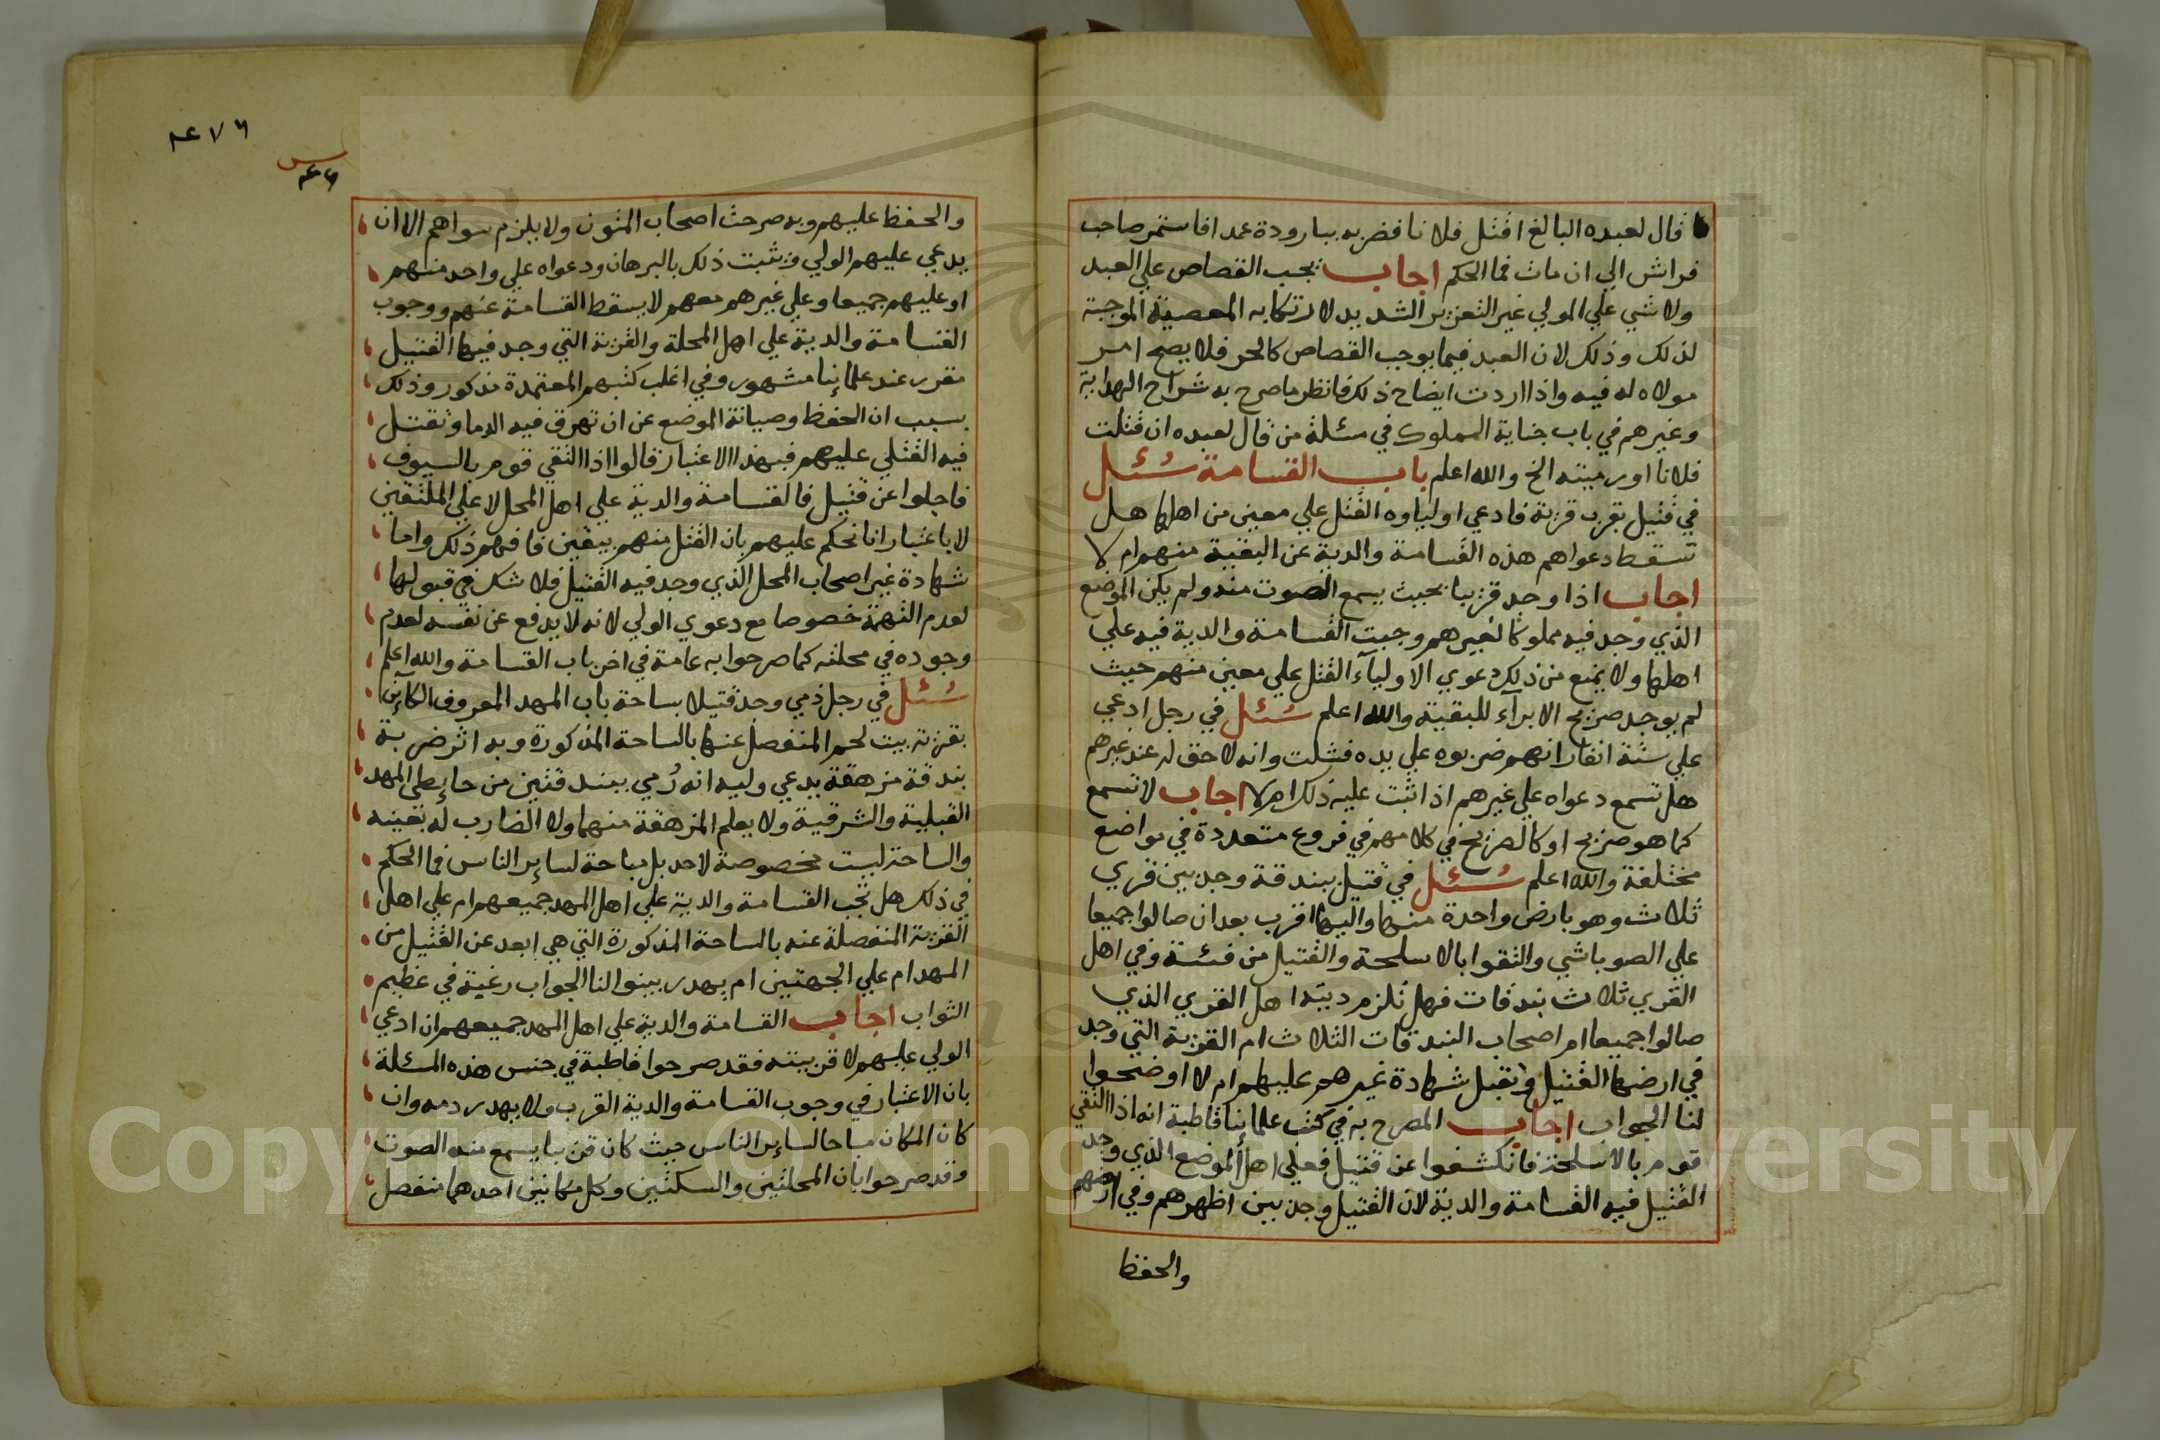 قال لعبده البالغ اقتل فلانا فضربه ببارودة عمدا فاستمر صاحب
فراش الي ان مات فما الحكم اجاب يجب القصاص علي العبد
ولا شي علي المولي غير التعزير الشديد لارتكابه المعصية الموجبة
لذلك وذلك لان العبد فيما يوجب القصاص كالحر فلا يصح امر
مولاه له فيه واذا اردت ايضاح ذلك فانظر ما صرح به شراح الهداية
وغيرهم في باب جناية المملوك في مسئلة من قال لعبده ان قتلت
فلانا او رميته الخ والله اعلم باب القسامة سُئل
في قتيل بقرب قرية فادعي اولياوه القتل علي معين من اهلها هل
تسقط دعواهم هذه القسامة والدية عن البقية منهم ام لا
اجاب اذا وجد قريبا بحيث يسمع الصوت منه ولم يكن الموضع
الذي وجد فيه مملوكا لغيرهم وجبت القسامة والدية فيه علي
اهلها ولا يمنع من ذلك دعوي الاولياء القتل علي معين منهم حيث
لم يوجد صريح الابراء للبقية والله اعلم سُئل في رجل ادعي
علي ستة انفار انهم ضربوه علي يده فشلت وانه لا حق له عند غيرهم
هل تسمع دعواه علي غيرهم اذا اثبت عليه ذلك ام لا اجاب لا تسمع
كما هو صريح او كالصريح في كلامهم في فروع متعددة في مواضع
مختلفة والله اعلم سُئل في قتيل ببندقة وجد بين قري
ثلاث وهو بارض واحدة منها واليها اقرب بعد ان صالوا جميعا
علي الصوباشي والتقوا بالاسلحة والقتيل من فئة وفي اهل
القري ثلاث بندقات فهل تلزم ديته اهل القري الذي
صالوا جميعا ام اصحاب البندقات الثلاث ام القرية التي وجد
في ارضها القتيل وتقبل شهادة غيرهم عليهم ام لا اوضحوا
لنا الجواب اجاب المصرح به في كتب علمائنا قاطبة انه اذا التقي
قوم بالاسلحة فانكشفوا عن قتيل فعلي اهل الموضع الذي وجد
القتيل فيه القسامة والدية لان القتيل وجد بين اظهرهم وفي ارضهم
والحفظ
٤٧٦
٤٦
والحفظ عليهم وبه صرحت اصحاب المتون ولا يلزم سواهم الا ان
يدعي عليهم الولي ويثبت ذلك بالبرهان ودعواه علي واحد منهم
او عليهم جميعا وعلي غيرهم معهم لا يسقط القسامة عنهم ووجوب
القسامة والدية علي اهل المحلة والقرية التي وجد فيها القتيل
مقرر عند علمائنا مشهور وفي اغلب كتبهم المعتمدة مذكور وذلك
بسبب ان الحفظ وصيانة الموضع عن ان تهرق فيه الدما وتقتل
فيه القتلي عليهم فبهذا الاعتبار قالوا اذا التقي قوم بالسيوف
فاجلوا عن قتيل فالقسامة والدية علي اهل المحل لا علي الملتقين
لا باعتبار انا نحكم عليهم بان القتل منهم بيقين فافهم ذلك واما
شهادة غير اصحاب المحل الذي وجد فيه القتيل فلا شك في قبولها
لعدم التهمة خصوصا مع دعوي الولي لانه لا يدفع عن نفسه لعدم
وجوده في محلته كما صرحوا به عامة في اخر باب القسامة والله اعلم
سُئل في رجل ذمي وجد قتيلا بساحة باب المهد المعروف الكائن
بقرية بيت لحم المنفصل عنها بالساحة المذكورة وبه اثر ضربة
بندقة مزهقة يدعي وليه انه رُمي ببندقتين من حايطي المهد
القبلية والشرقية ولا يعلم المزهقة منهما ولا الضارب له بعينه
والساحة ليست مخصوصة لاحد بل مباحة لساير الناس فما الحكم
في ذلك هل تجب القسامة والدية علي اهل المهد جميعهم ام علي اهل
القرية المنفصلة عنه بالساحة المذكورة التي هي ابعد عن القتيل من
المهد ام علي الجهتين ام يهدر بينوا لنا الجواب رغبة في عظيم
الثواب اجاب القسامة والدية علي اهل المهد جميعهم ان ادعي
الولي عليهم لا قريته فقد صرحوا قاطبة في جنس هذه المسئلة
بان الاعتبار في وجوب القسامة والدية القرب ولا يهدر دمه وان
كان المكان مباحا لساير الناس حيث كان قريبا يسمع منه الصوت
وقد صرحوا بان المحلتين والسكتين وكل مكانين احدهما منفصل
Copyright © King Saud University